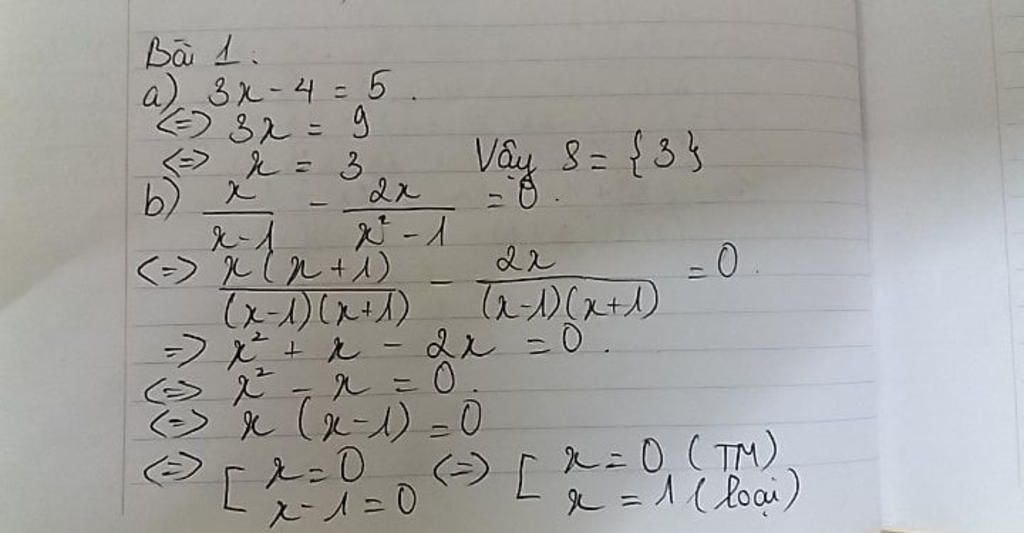 Bài 1:
a) 3x - 4 = 5.
<=> 3x = 9
<=> x = 3 Vậy S = {3}
b) x/(x-1) - 2x/(x²-1) = 0.
<=> x(x+1)/((x-1)(x+1)) - 2x/((x-1)(x+1)) = 0.
=> x² + x - 2x = 0.
<=> x² - x = 0.
<=> x (x-1) = 0
<=> [ x = 0 <=> [ x = 0 (TM)
x - 1 = 0 x = 1 (loại)